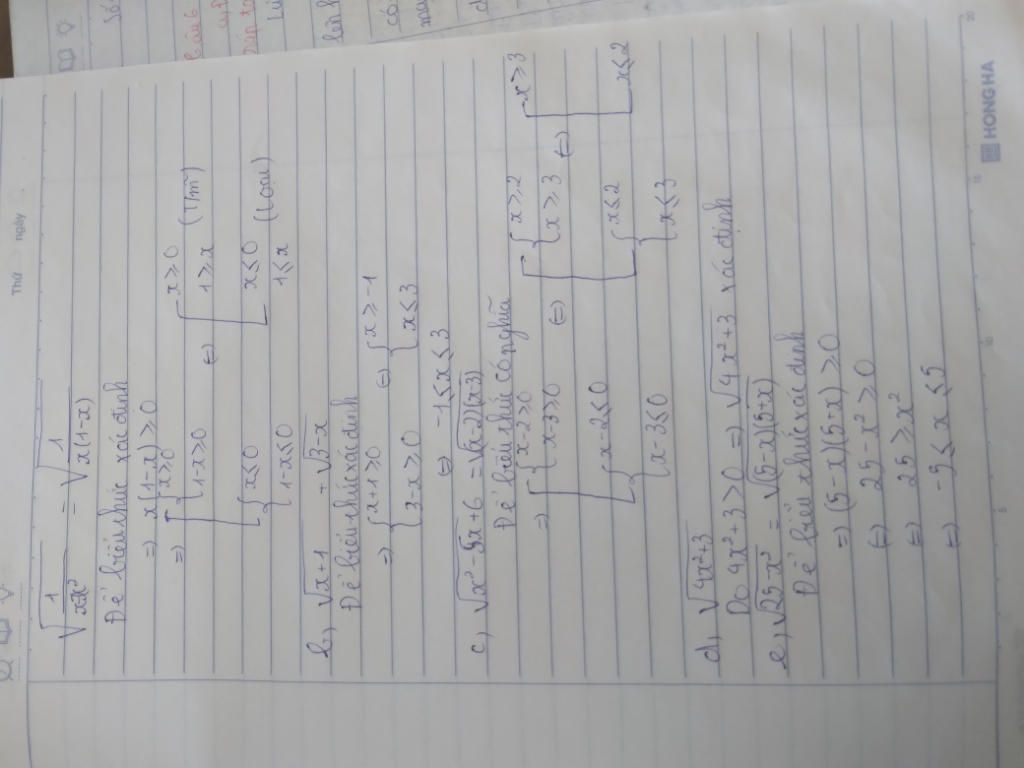 Thứ ngày
√(1/(x-x²)) = √(1/(x(1-x)))
Để biểu thức xác định
=> x(1-x) ≥ 0
=> [ { x ≥ 0 <=> [ x ≥ 0 (T/m)
{ 1-x ≥ 0 1 ≥ x
{ x ≤ 0 x ≤ 0 (loại)
{ 1-x ≤ 0 1 ≤ x
b, √(x+1) - √(3-x)
Để biểu thức xác định
=> { x+1 ≥ 0 <=> { x ≥ -1
{ 3-x ≥ 0 { x ≤ 3
<=> -1 ≤ x ≤ 3
c, √(x²-5x+6) = √((x-2)(x-3))
Để biểu thức có nghĩa
=> [ { x-2 ≥ 0 <=> [ { x ≥ 2 <=> [ x ≥ 3
{ x-3 ≥ 0 { x ≥ 3 x ≤ 2
{ x-2 ≤ 0 { x ≤ 2
{ x-3 ≤ 0 { x ≤ 3
d, √(4x²+3)
Do 4x²+3 > 0 => √(4x²+3) xác định
e, √(25-x²) = √((5-x)(5-x))
Để biểu thức xác định
=> (5-x)(5-x) ≥ 0
<=> 25-x² ≥ 0
<=> 25 ≥ x²
<=> -5 ≤ x ≤ 5
HONG HA
5
10
15
20